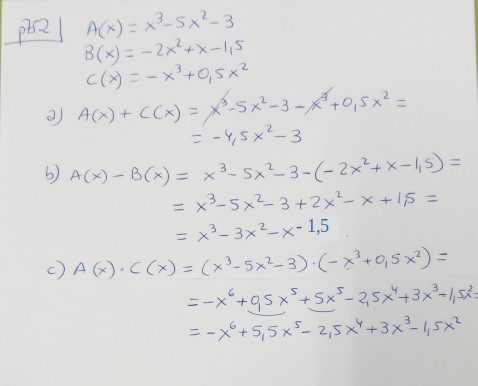 př52 A(x) = x³-5x²-3
B(x) = -2x²+x-1,5
C(x) = -x³+0,5x²
a) A(x) + C(x) = x³-5x²-3-x³+0,5x² =
= -4,5x²-3
b) A(x) - B(x) = x³-5x²-3-(-2x²+x-1,5) =
= x³-5x²-3+2x²-x+1,5 =
= x³-3x²-x-1,5
c) A(x)·C(x) = (x³-5x²-3)·(-x³+0,5x²) =
= -x⁶+0,5x⁵+5x⁵-2,5x⁴+3x³-1,5x²=
= -x⁶+5,5x⁵-2,5x⁴+3x³-1,5x²